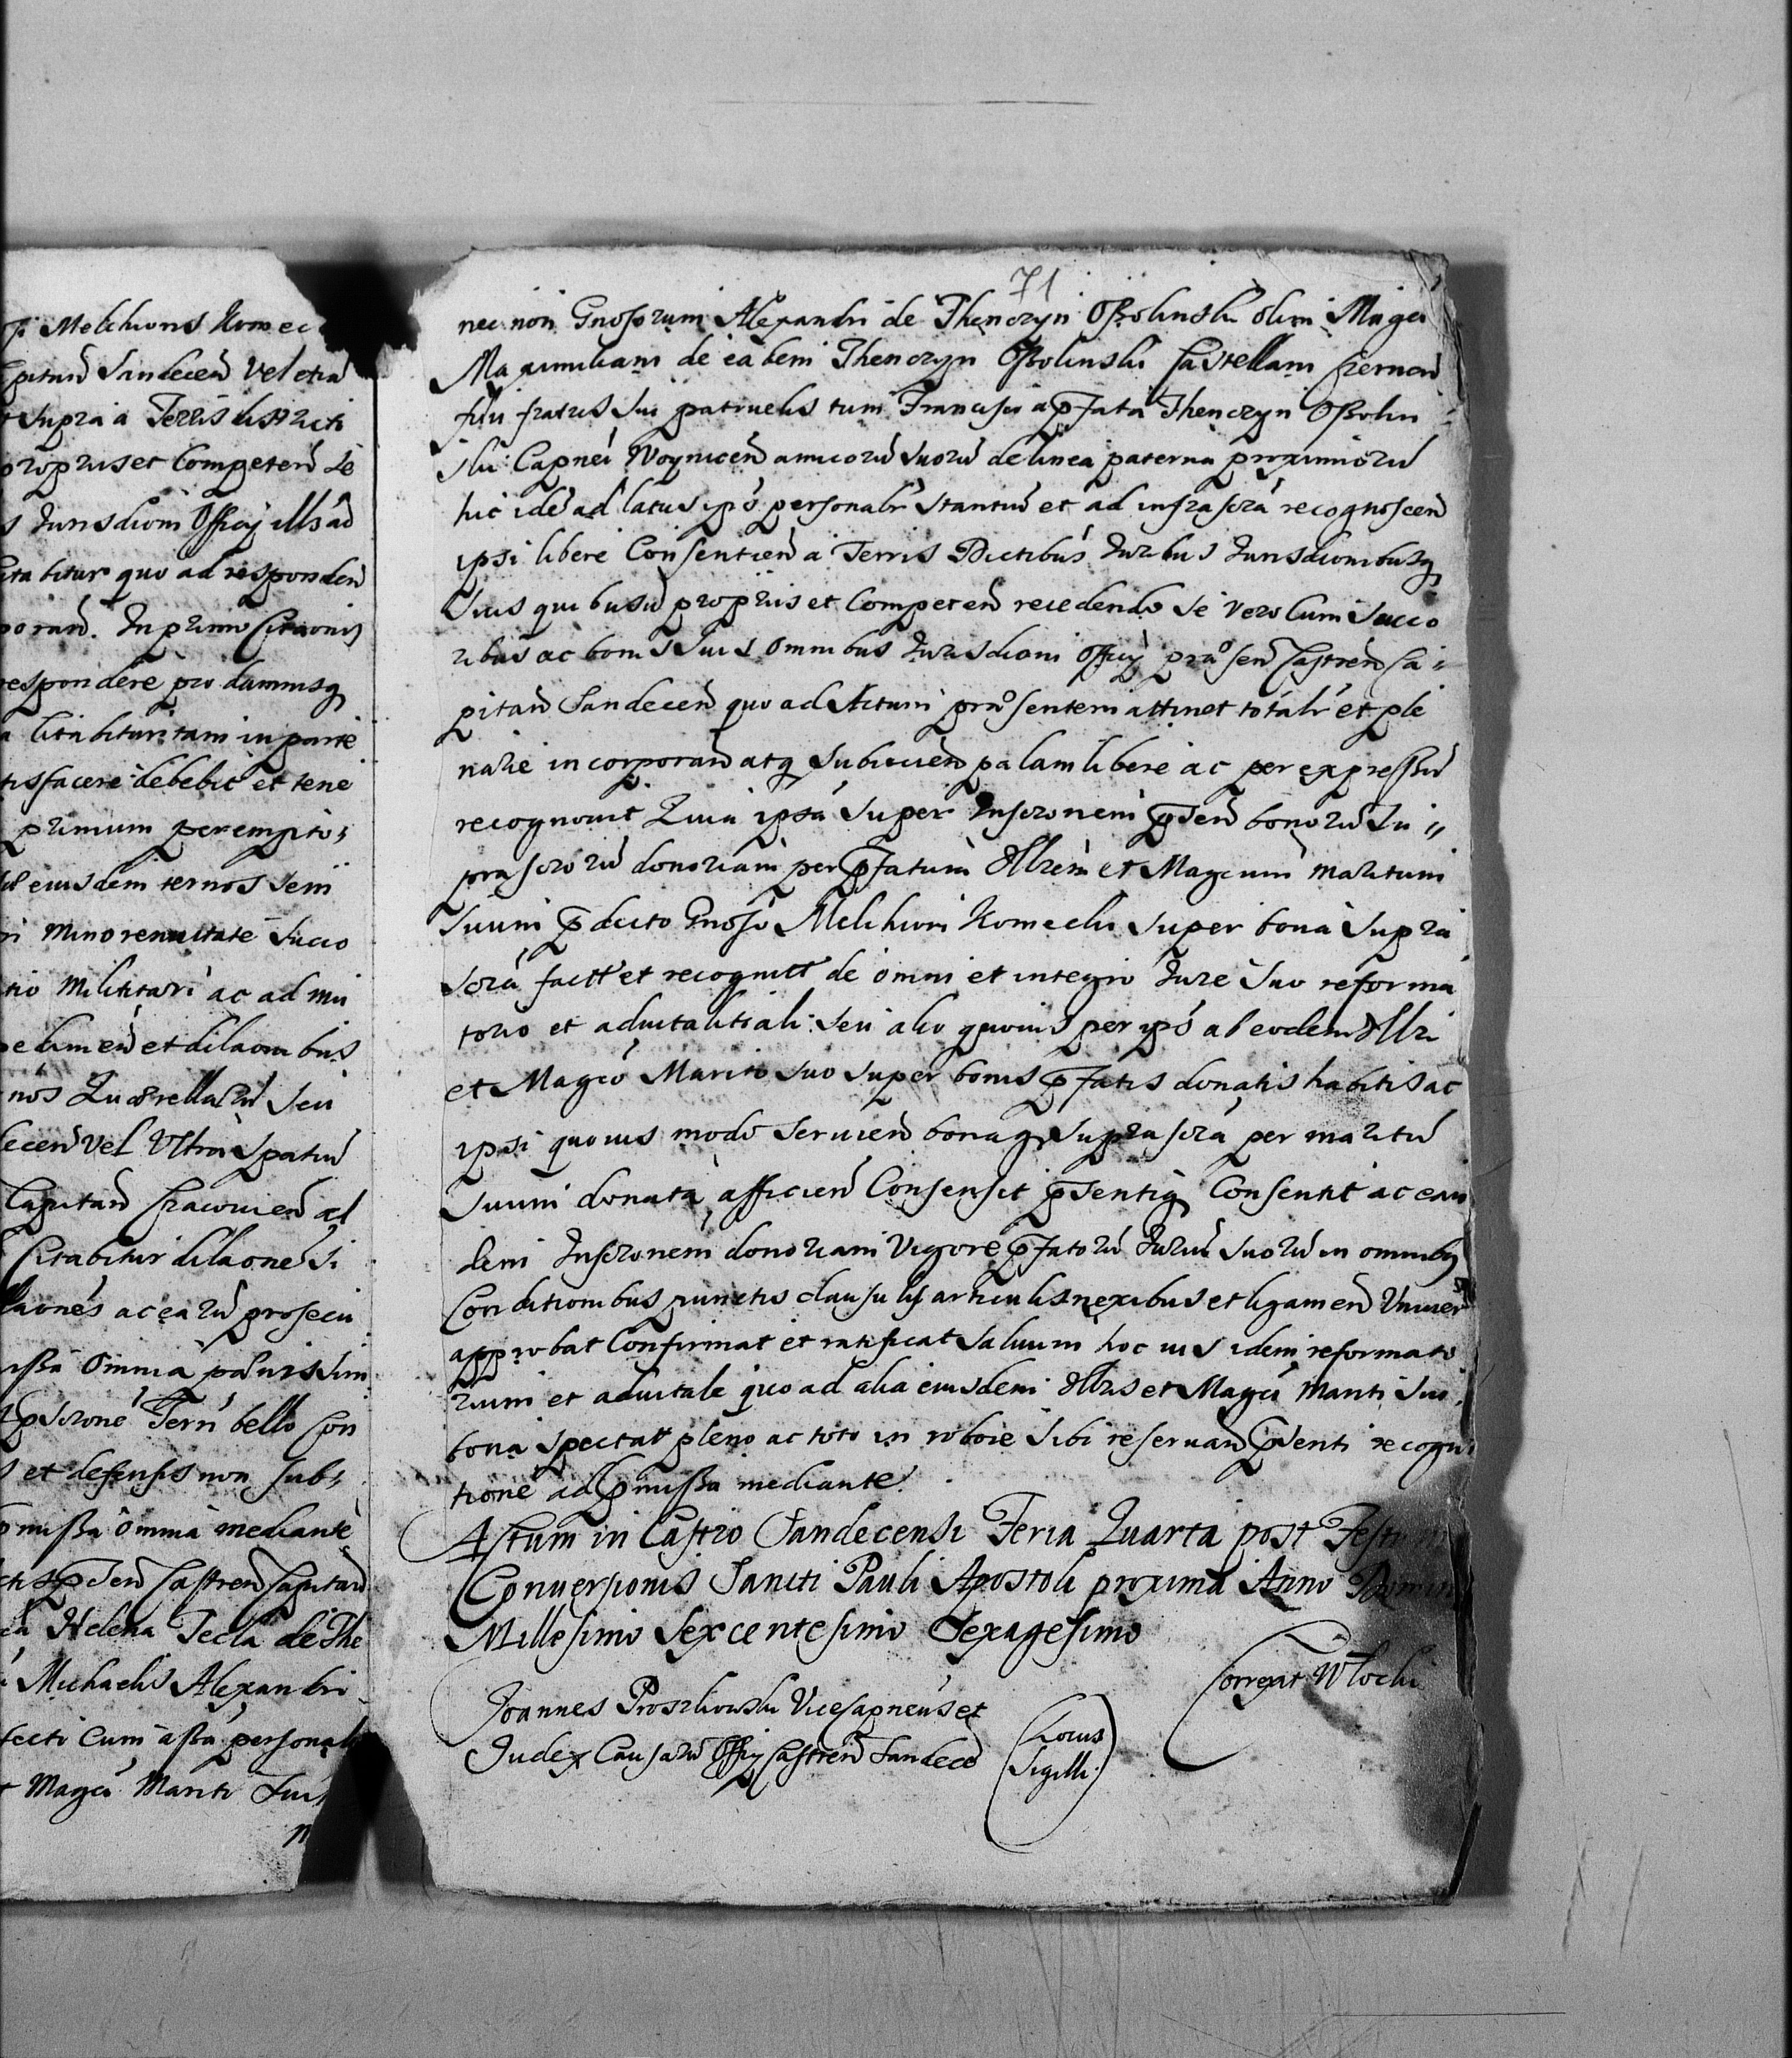 Melchioris Komec
Capitan̄ Sandecen̄ vel etia
Supra a Terris districti
propriis et Competen̄ se
Iurisdioni Officy illsad
Citabitur quo ad responden̄
poran̄. In primo Citaonis
respondere pro damnisq
Citabitur tam in parte
tisfacere debebit et tene
primum peremptor,
eiusdem ternos seu
minorennitate succo
militari ac ad mu
pedimen̄ et dilaonibus
nos Quærellarū seu
decen̄ vel Ultra spatiū
Capitan̄ Cracovien̄ ad
Citabitur dilaone Si
laones ac earū prosecu
issa Omnia
pscrone Tern bello Con
et defensis non subs,
pmissa Omnia mediante
pnsen̄ Castren̄ Capitan̄
Helena Tecla de The
Michaelis Alexandri
fecti Cum assa personal
Magci Mariti Sui
n
71
nec non Gnosorum Alexandri de Thenczyn Ossolinski olim Magci
Maximiliani de eadem Thenczyn Ossolinski Castellani Czernen̄
filii fratris sui patruelis tum Francisci a pfata Thenczyn Ossolin
ski Capnei Woynicen̄ amicorū suorū de linea paterna proximiorū
hic idē ad latus ipō personalr stantiū et ad infrascra recognoscen̄
ipsi libere Consentien̄ a Terris Dictibus Iuribus Iurisdionibusq
suis quibusū propriis et Competen̄ recedendo se vero Cum succo
ribus ac bonis suis omnibus Iurisdioni Officy præsen̄ Castren̄ Ca
pitan̄ Sandecen̄ quo ad Actum præsentem attinet totalr et ple
narie incorporan̄ atq subiicien̄ palam libere ac per expressū
recognovit Quia ipsa super Inscronem pnsen̄ bonorū In
frascrorū donoriam per pfatum Illrem et Magcum maritum
suum pdicto Gnoso Melchiori Komecki super bona supra
scra factt et recognitt de omni et integro Iure suo reforma
torio et advitalitiali seu alio quovis per ipō ab eodem Illri
et Magco Marito suo super bonis pfatis donatis habitis ac
ipsi quovis modo servien̄ bonaq suprascra per maritū
suum donata afficien̄ Consensit psentiq Consentit ac ean
dem Inscronem donoriam Vigore pfatorū Iuriū suorū in omnibq
Conditionibus punctis clausulis articulis nexibus et ligamen̄ Univer
approbat Confirmat et ratificat salvum hoc ius idem reformato
rium et advitale quo ad alia eiusdem Illris et Magci Mariti sui
bona spectatt pleno ac toto in robore sibi reservan̄ psenti recogni
tione ad pmissa mediante.
Actum in Castro Sandecensi Feria Quarta post Festum
Conversionis Sancti Pauli Apostoli proxima Anno Domini
Millesimo Sexcentesimo Sexagesimo
Joannes Proszkowski Vicecapneus et
Judex Causarū Officy Castren̄ Sandecen̄
(Locus
Sigilli)
Correxit Włocki